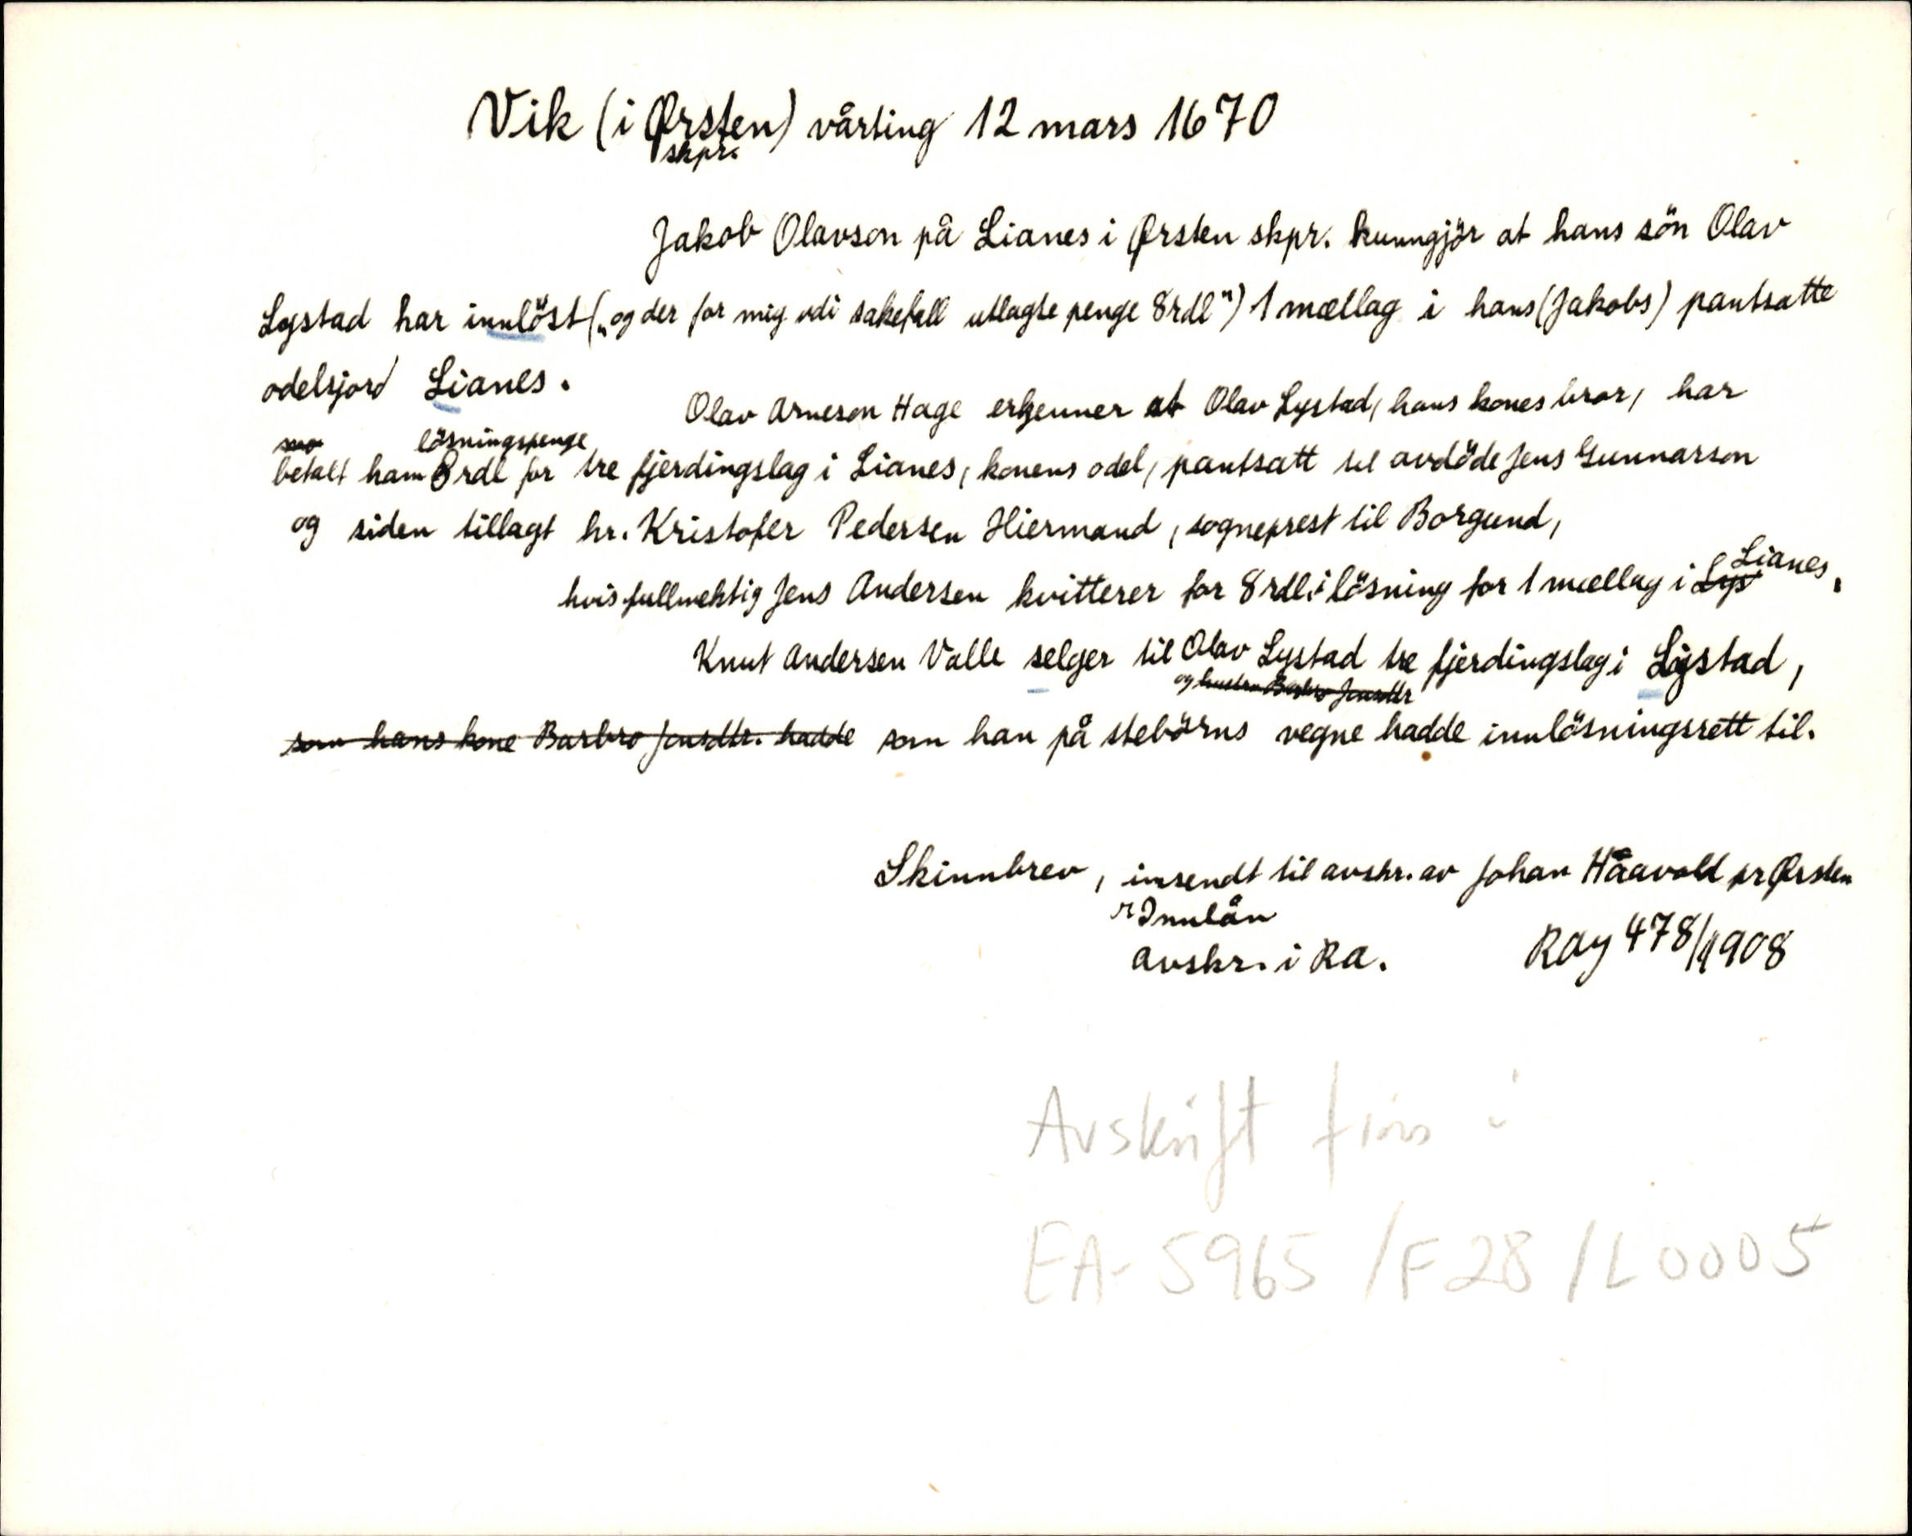 Vik (i Ørsten) vårting 12 mars 1670
skpr.
Jakob Olavson på Lianes i Ørsten skpr. kunngjör at hans sön Olav
Lystad har innlöst („og der for mig udi sakefall utlagte penge 8 rdl") 1 mællag i hans (Jakobs) pantsatte
odelsjord Lianes.
Olav Arneson Hage erkjenner at Olav Lystad, hans kones bror, har
lösningspenge
betalt ham 8 rdl for tre fjerdingslag i Lianes, konens odel, pantsatt til avdöde Jens Gunnarson
og siden tillagt hr. Kristofer Pedersen Hiermand, sogneprest til Borgund,
Lianes.
hvis fullmektig Jens Andersen kvitterer for 8 rdl. i lösning for 1 mællag i Lys
Knut Andersen Valle selger til Olav Lystad tre fjerdingslag i Lystad,
og hustru Barbro Jensdtr
som hans kone Barbro Jensdtr. hadde som han på stebörns vegne hadde innlösningsrett til.
Skinnbrev, innsendt til avskr. av Johan Håavold pr Ørsten
Innlån
avskr. i RA. RAy 478/1908
Avskrift fins i
EA-5965/F28/L0005